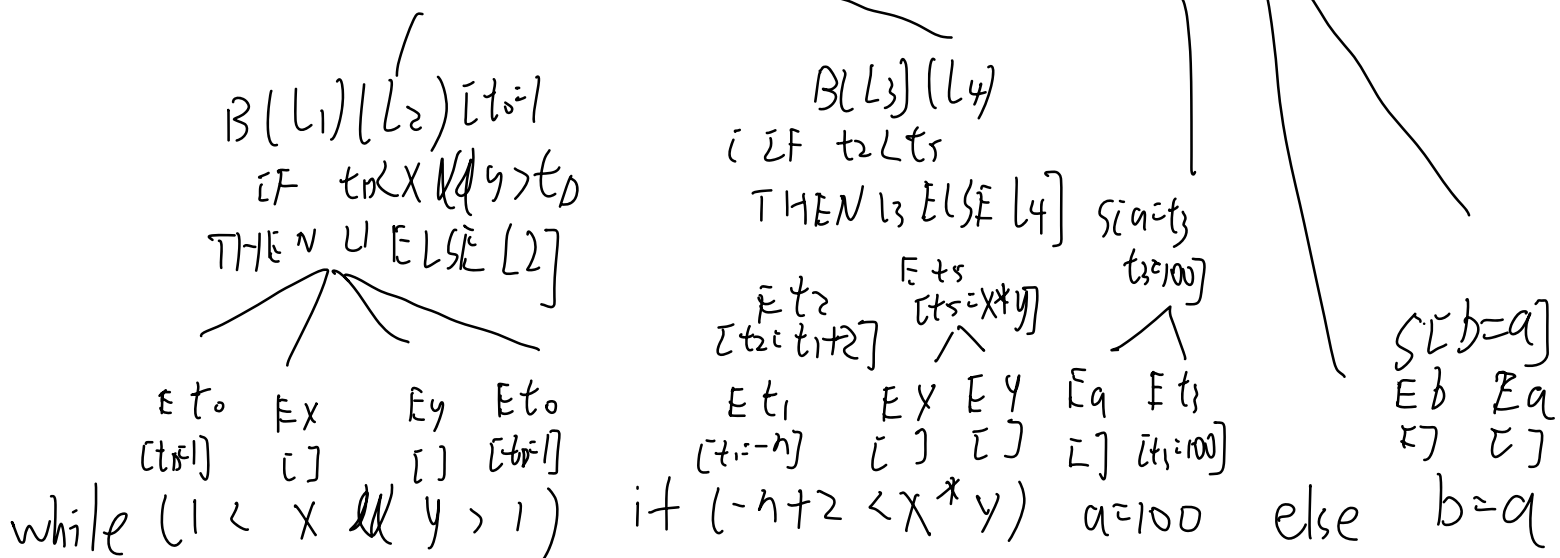 B(L1)(L2)[t0=1
IF t0<X && y>t0
THEN L1 ELSE L2]
B[L3](L4)
[IF t2<t5
THEN L3 ELSE L4]
S[a=t3
t3=100]
E t2
[t2=t1+2]
E t5
[t5=X*y]
S[b=a]
E t0 E X E y E t0
[t0=1] [] [] [t0=1]
E t1 E X E Y E a E t3
[t1=-n] [] [] [] [t3=100]
E b E a
[] []
while (1 < X && y > 1) if (-n+2 < X * y) a=100 else b=a